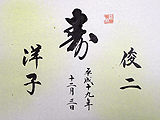 俊二
寿
平成十九年
十二月三日
洋子